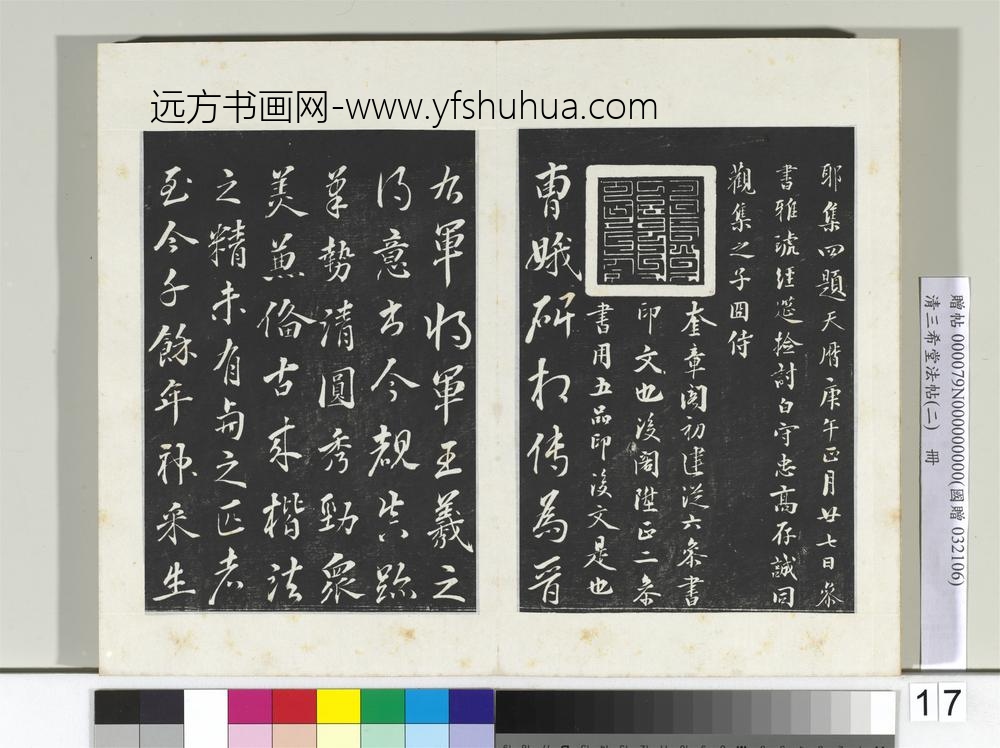 远方书画网-www.yfshuhua.com
耶集四題天曆庚午正月廿七日叅
書雅琥經筵檢討白守忠高存誠同
觀集之子囸侍
奎章閣初建從六叅書
印文也後閣陞正二叅
書用五品印後文是也
曹娥碑相傳為晉
右軍將軍王羲之
得意書今覩真跡
筆勢清圓秀勁衆
美兼備古来楷法
之精未有與之匹者
至今千餘年神采生
贈帖 000079N000000000(國贈 032106)
清三希堂法帖(二) 冊
17